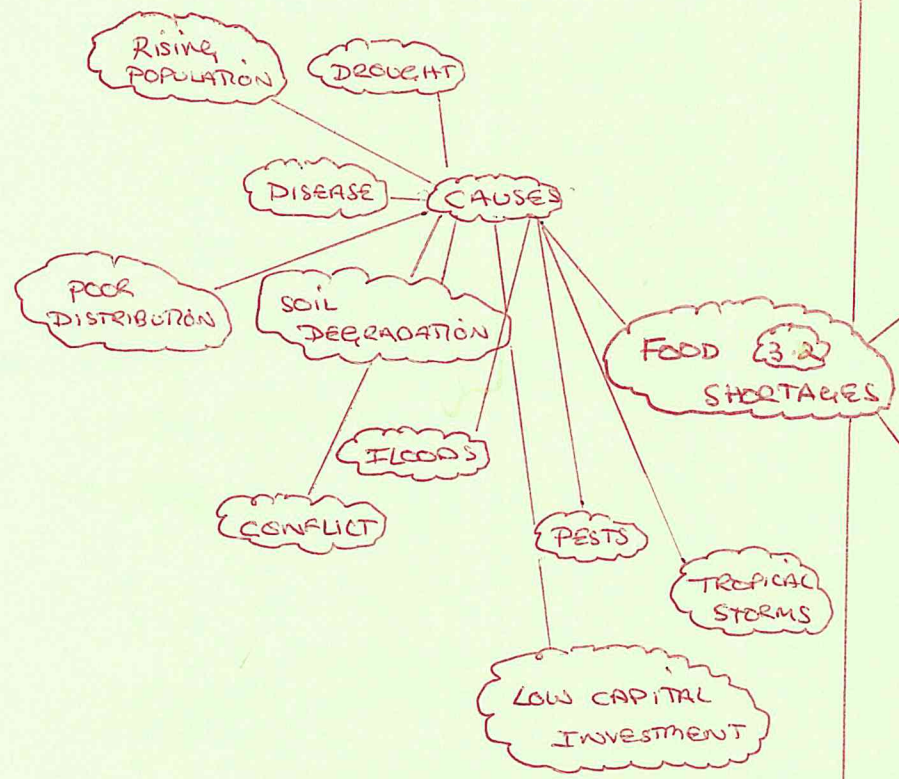 Rising
POPULATION
DROUGHT
DISEASE
CAUSES
POOR
DISTRIBUTION
SOIL
DEGRADATION
FOOD 3.2
SHORTAGES
FLOODS
CONFLICT
PESTS
TROPICAL
STORMS
LOW CAPITAL
INVESTMENT